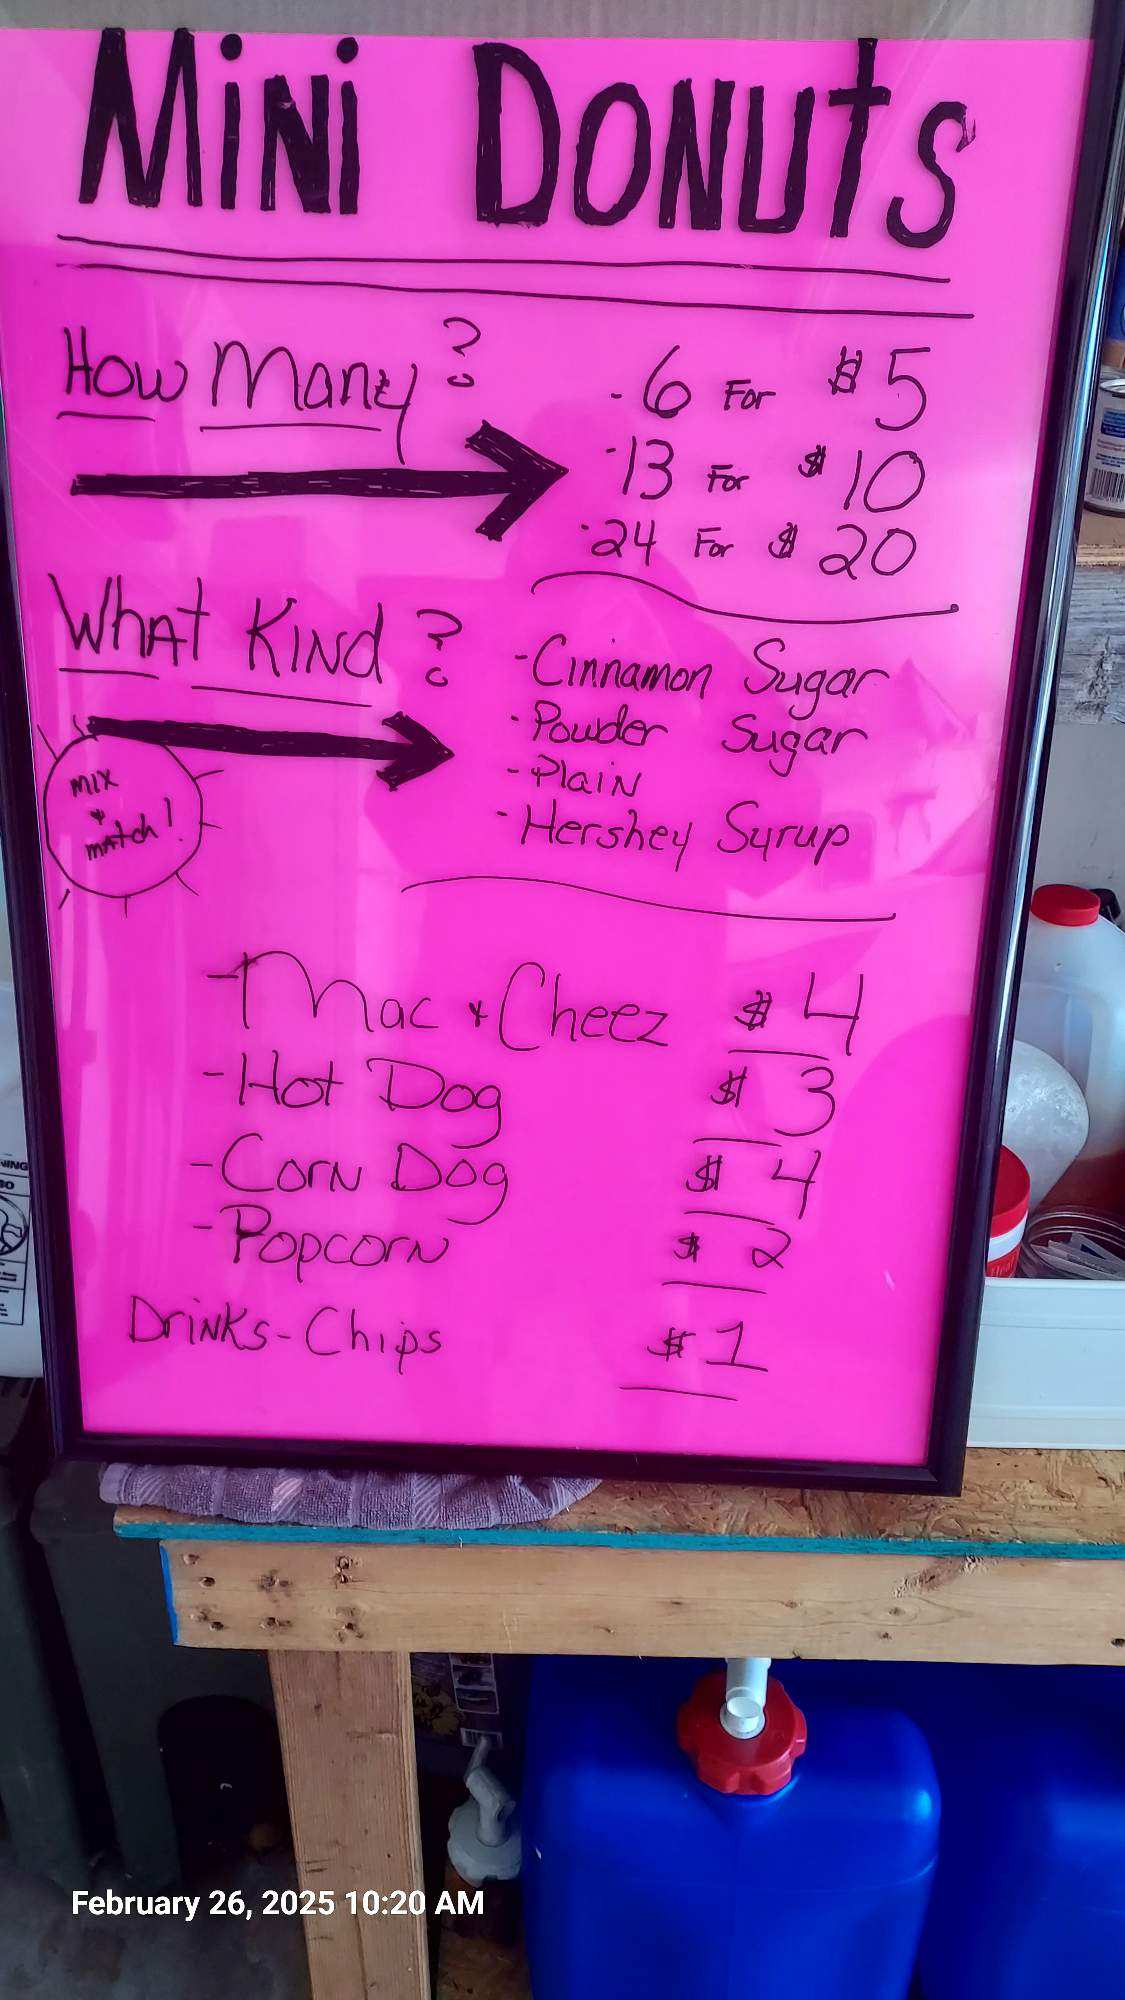 Mini Donuts
How Many?
- 6 For $5
- 13 For $10
- 24 For $20
What Kind?
- Cinnamon Sugar
- Powder Sugar
- Plain
- Hershey Syrup
mix
+
match!
- Mac + Cheez $4
- Hot Dog $3
- Corn Dog $4
- Popcorn $2
Drinks - Chips $1
February 26, 2025 10:20 AM